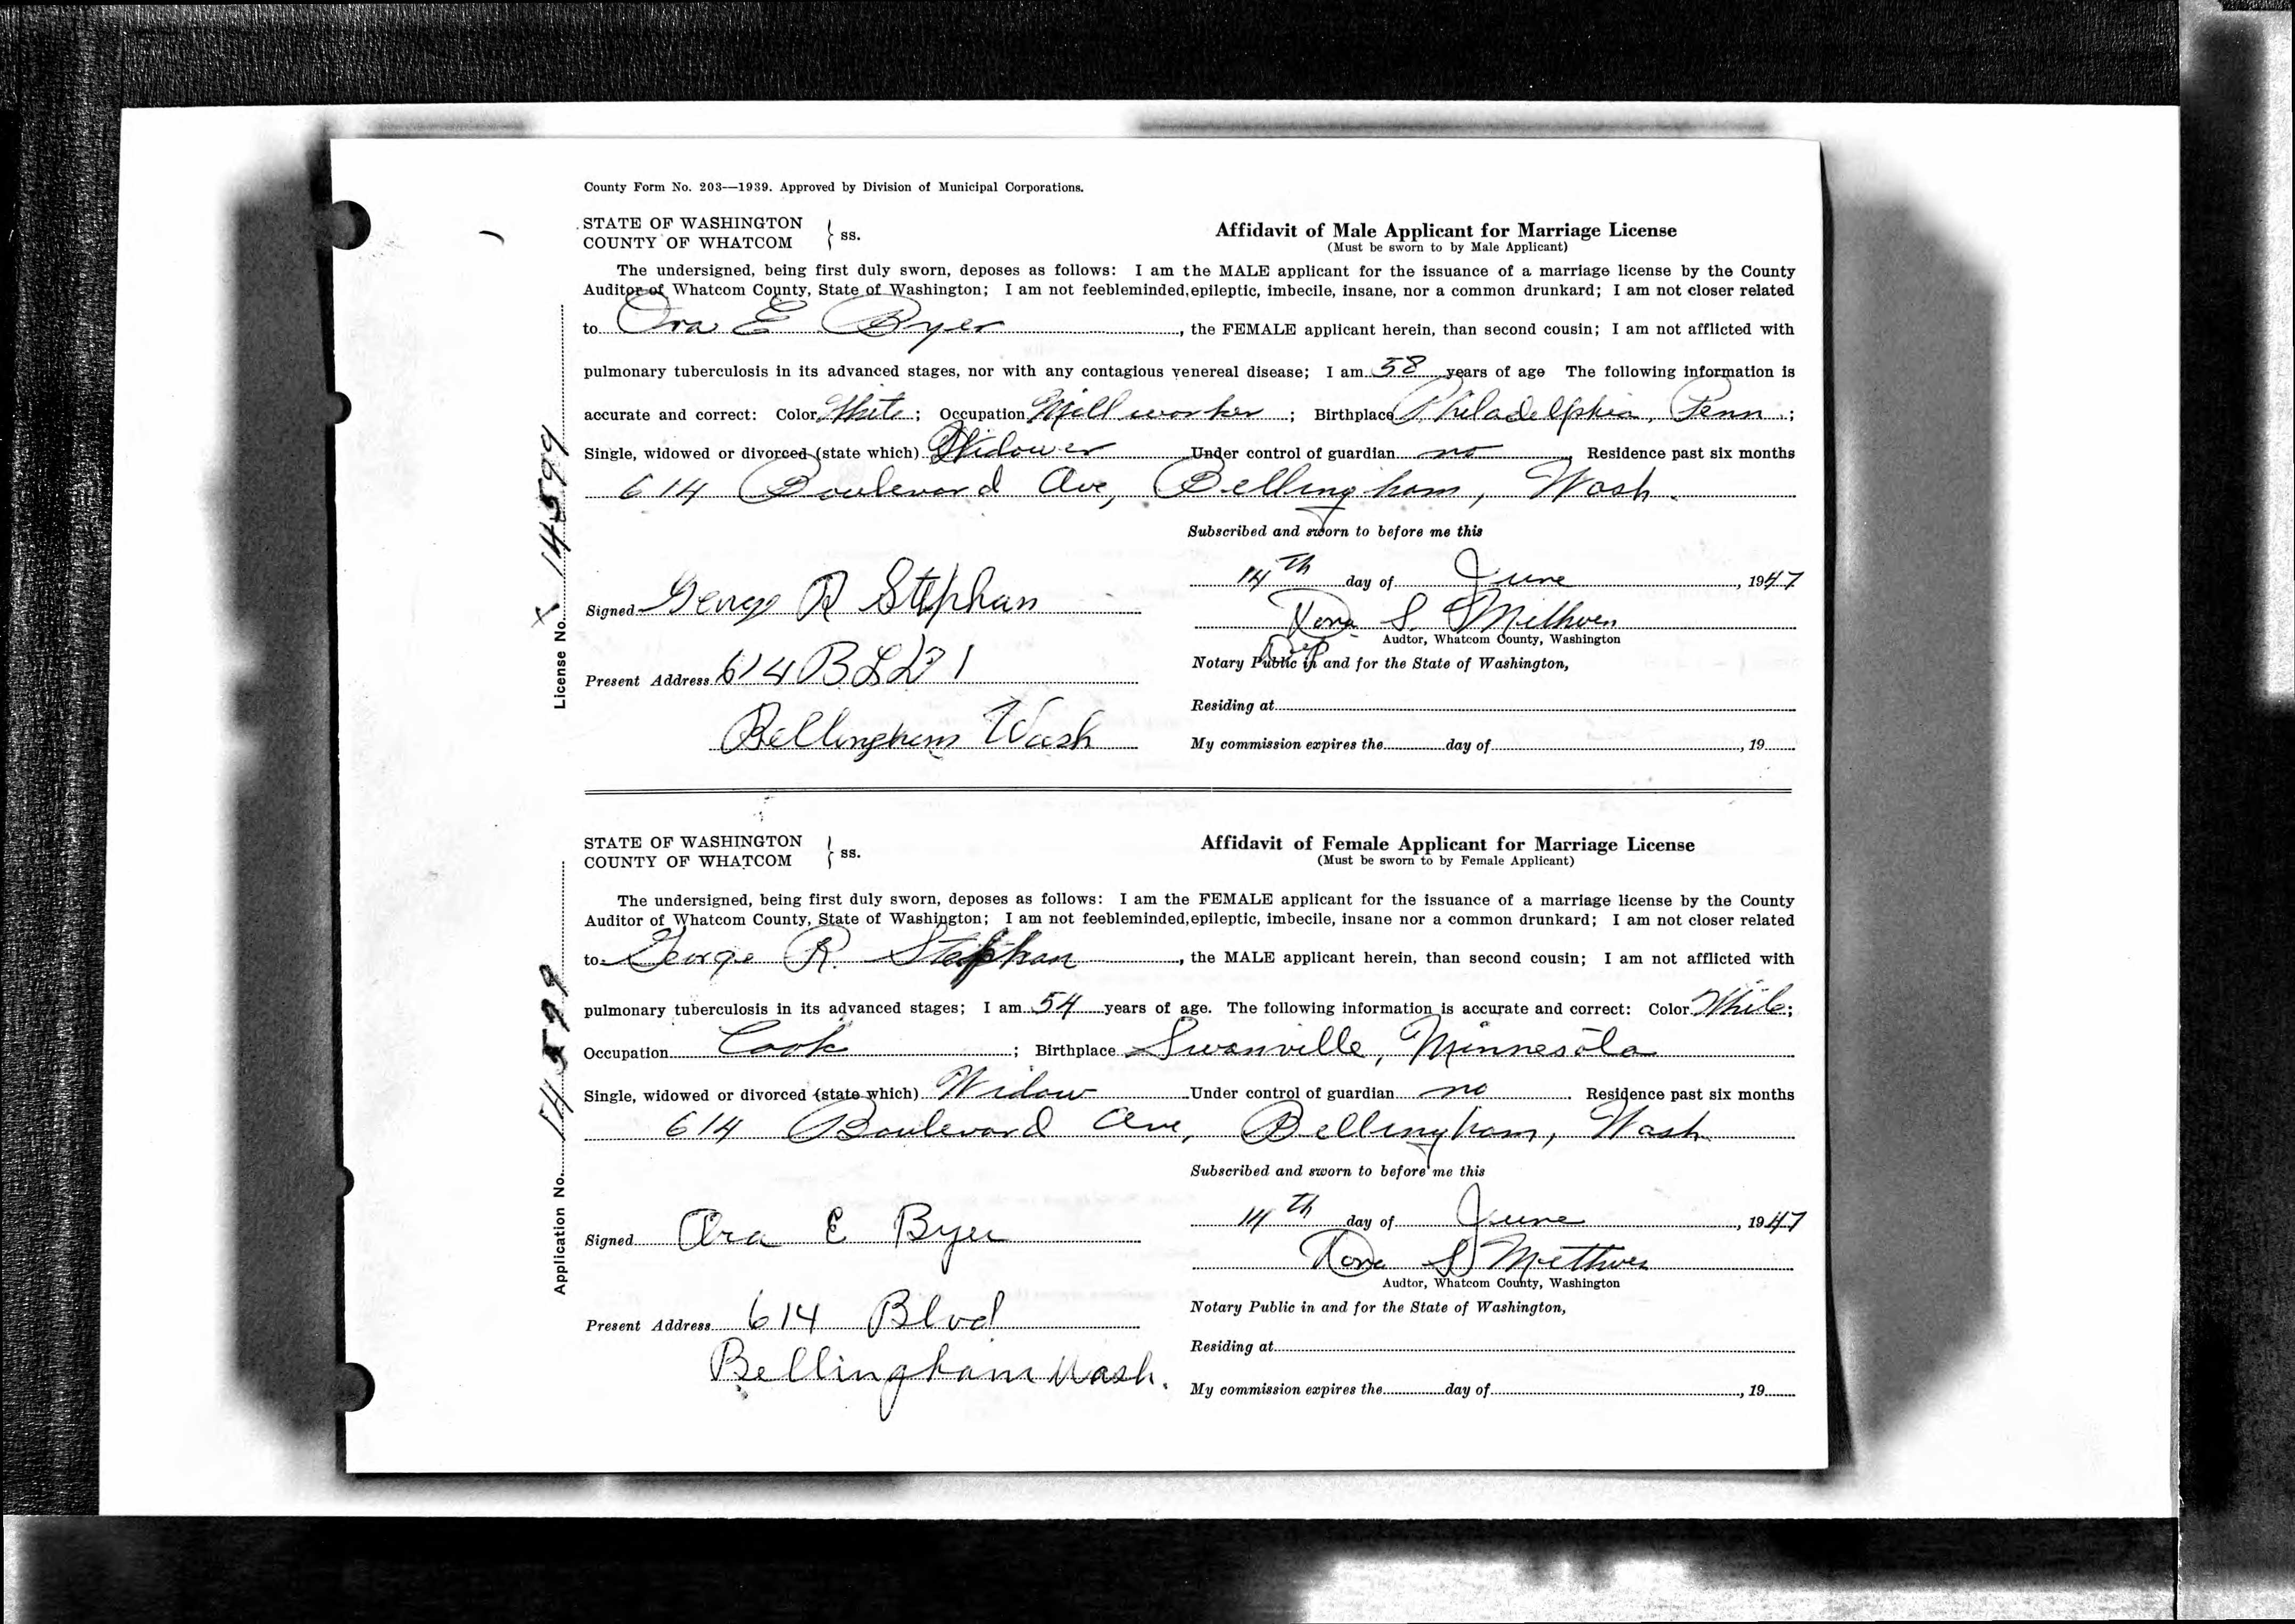 County Form No. 203—1939. Approved by Division of Municipal Corporations.
STATE OF WASHINGTON
COUNTY OF WHATCOM } ss.
Affidavit of Male Applicant for Marriage License
(Must be sworn to by Male Applicant)
The undersigned, being first duly sworn, deposes as follows: I am the MALE applicant for the issuance of a marriage license by the County
Auditor of Whatcom County, State of Washington; I am not feebleminded, epileptic, imbecile, insane, nor a common drunkard; I am not closer related
to Ora E Byer, the FEMALE applicant herein, than second cousin; I am not afflicted with
pulmonary tuberculosis in its advanced stages, nor with any contagious venereal disease; I am 58 years of age The following information is
accurate and correct: Color White; Occupation Mill worker; Birthplace Philadelphia, Penn.;
Single, widowed or divorced (state which) Widower Under control of guardian no Residence past six months
614 Boulevard Ave, Bellingham, Wash.
Subscribed and sworn to before me this
14th day of June, 1947
Signed George R Stephan
S. Methven
Audtor, Whatcom County, Washington
Dep
Present Address 614 BLVD
Notary Public in and for the State of Washington,
Residing at
Bellingham Wash
My commission expires the day of , 19
License No. X 14599
STATE OF WASHINGTON
COUNTY OF WHATCOM } ss.
Affidavit of Female Applicant for Marriage License
(Must be sworn to by Female Applicant)
The undersigned, being first duly sworn, deposes as follows: I am the FEMALE applicant for the issuance of a marriage license by the County
Auditor of Whatcom County, State of Washington; I am not feebleminded, epileptic, imbecile, insane nor a common drunkard; I am not closer related
to George R. Stephan, the MALE applicant herein, than second cousin; I am not afflicted with
pulmonary tuberculosis in its advanced stages; I am 54 years of age. The following information is accurate and correct: Color White;
Occupation Cook; Birthplace Swanville, Minnesota
Single, widowed or divorced (state which) Widow Under control of guardian no Residence past six months
614 Boulevard Ave, Bellingham, Wash
Subscribed and sworn to before me this
14th day of June, 1947
Signed Ora E Byer
S Methven
Audtor, Whatcom County, Washington
Present Address 614 Blvd
Notary Public in and for the State of Washington,
Residing at
Bellingham Wash.
My commission expires the day of , 19
Application No. 14599